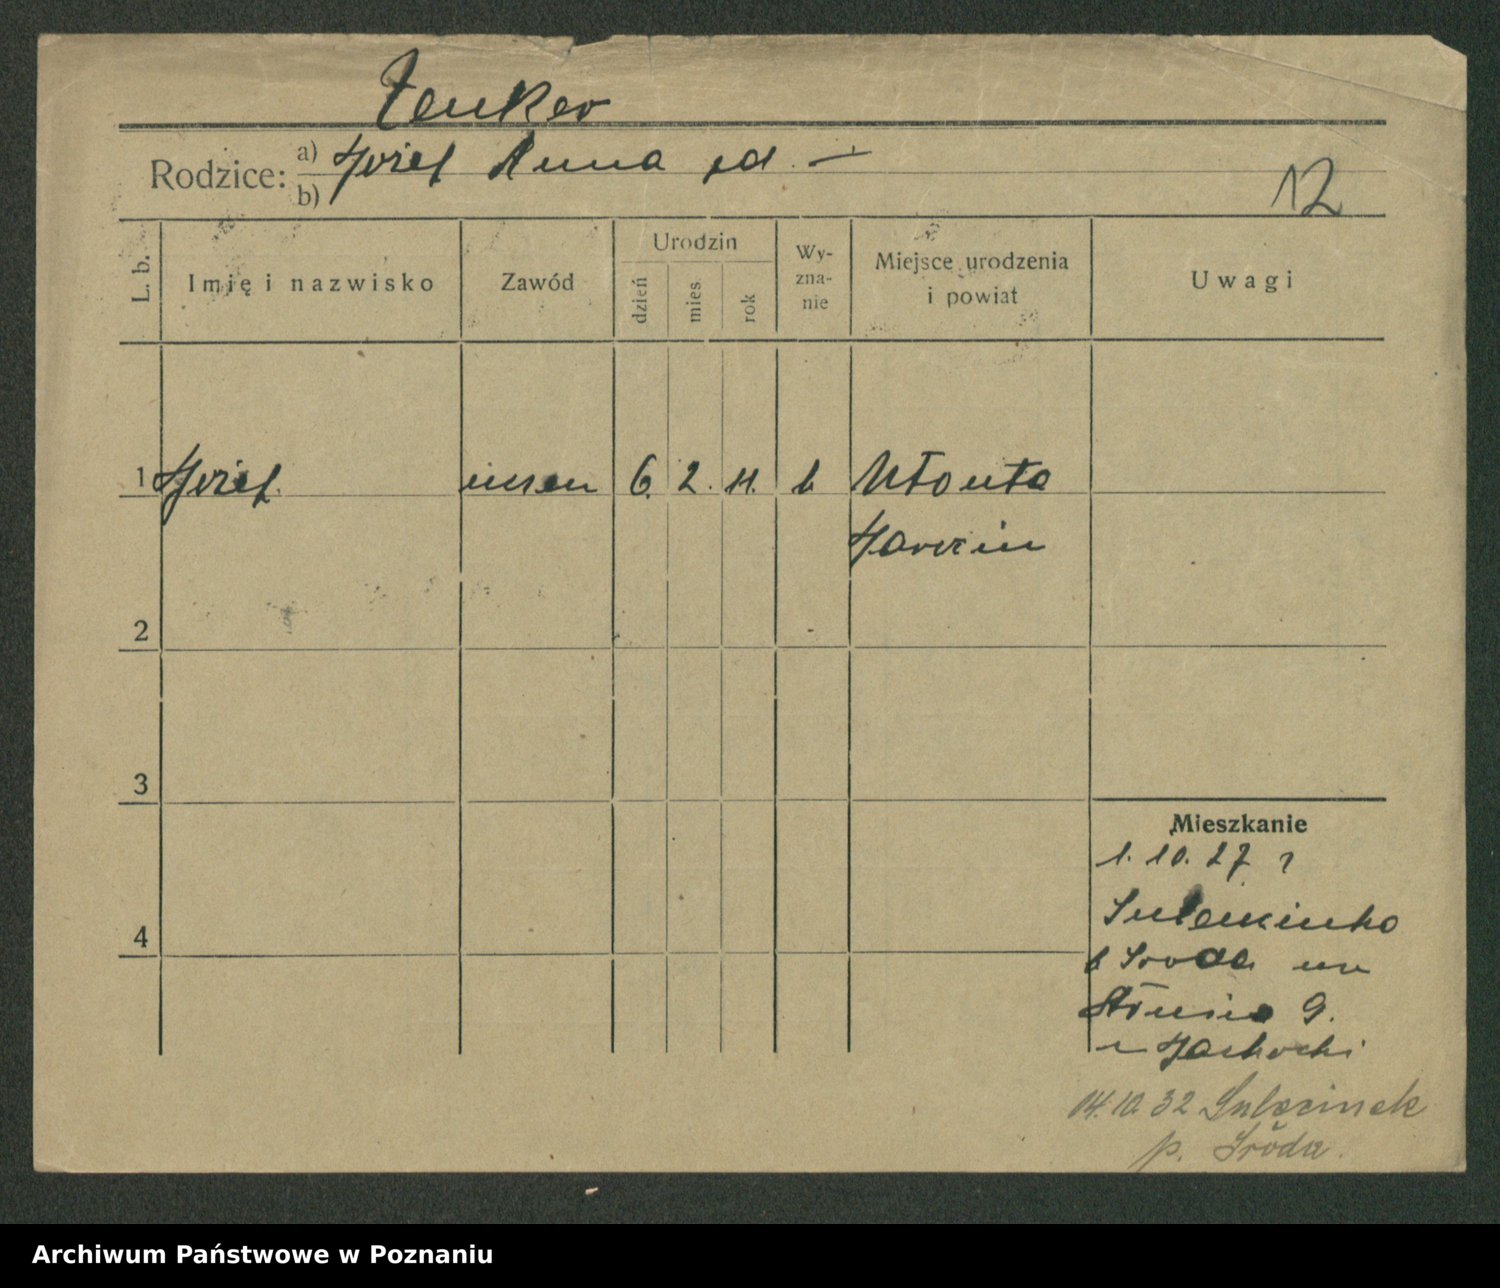 Zenker
Rodzice: a) Józef Anna zd. —
b)
12
L. b. Imię i nazwisko Zawód Urodzin dzień mies rok Wy-zna-nie Miejsce urodzenia i powiat Uwagi
1 Józef uczeń 6. 2. 11. k Utonta
Jarocin
2
3
Mieszkanie
1. 10. 27 z
4
Środa
9.
14.10.32 Sulęcinek
p. Środa.
Archiwum Państwowe w Poznaniu